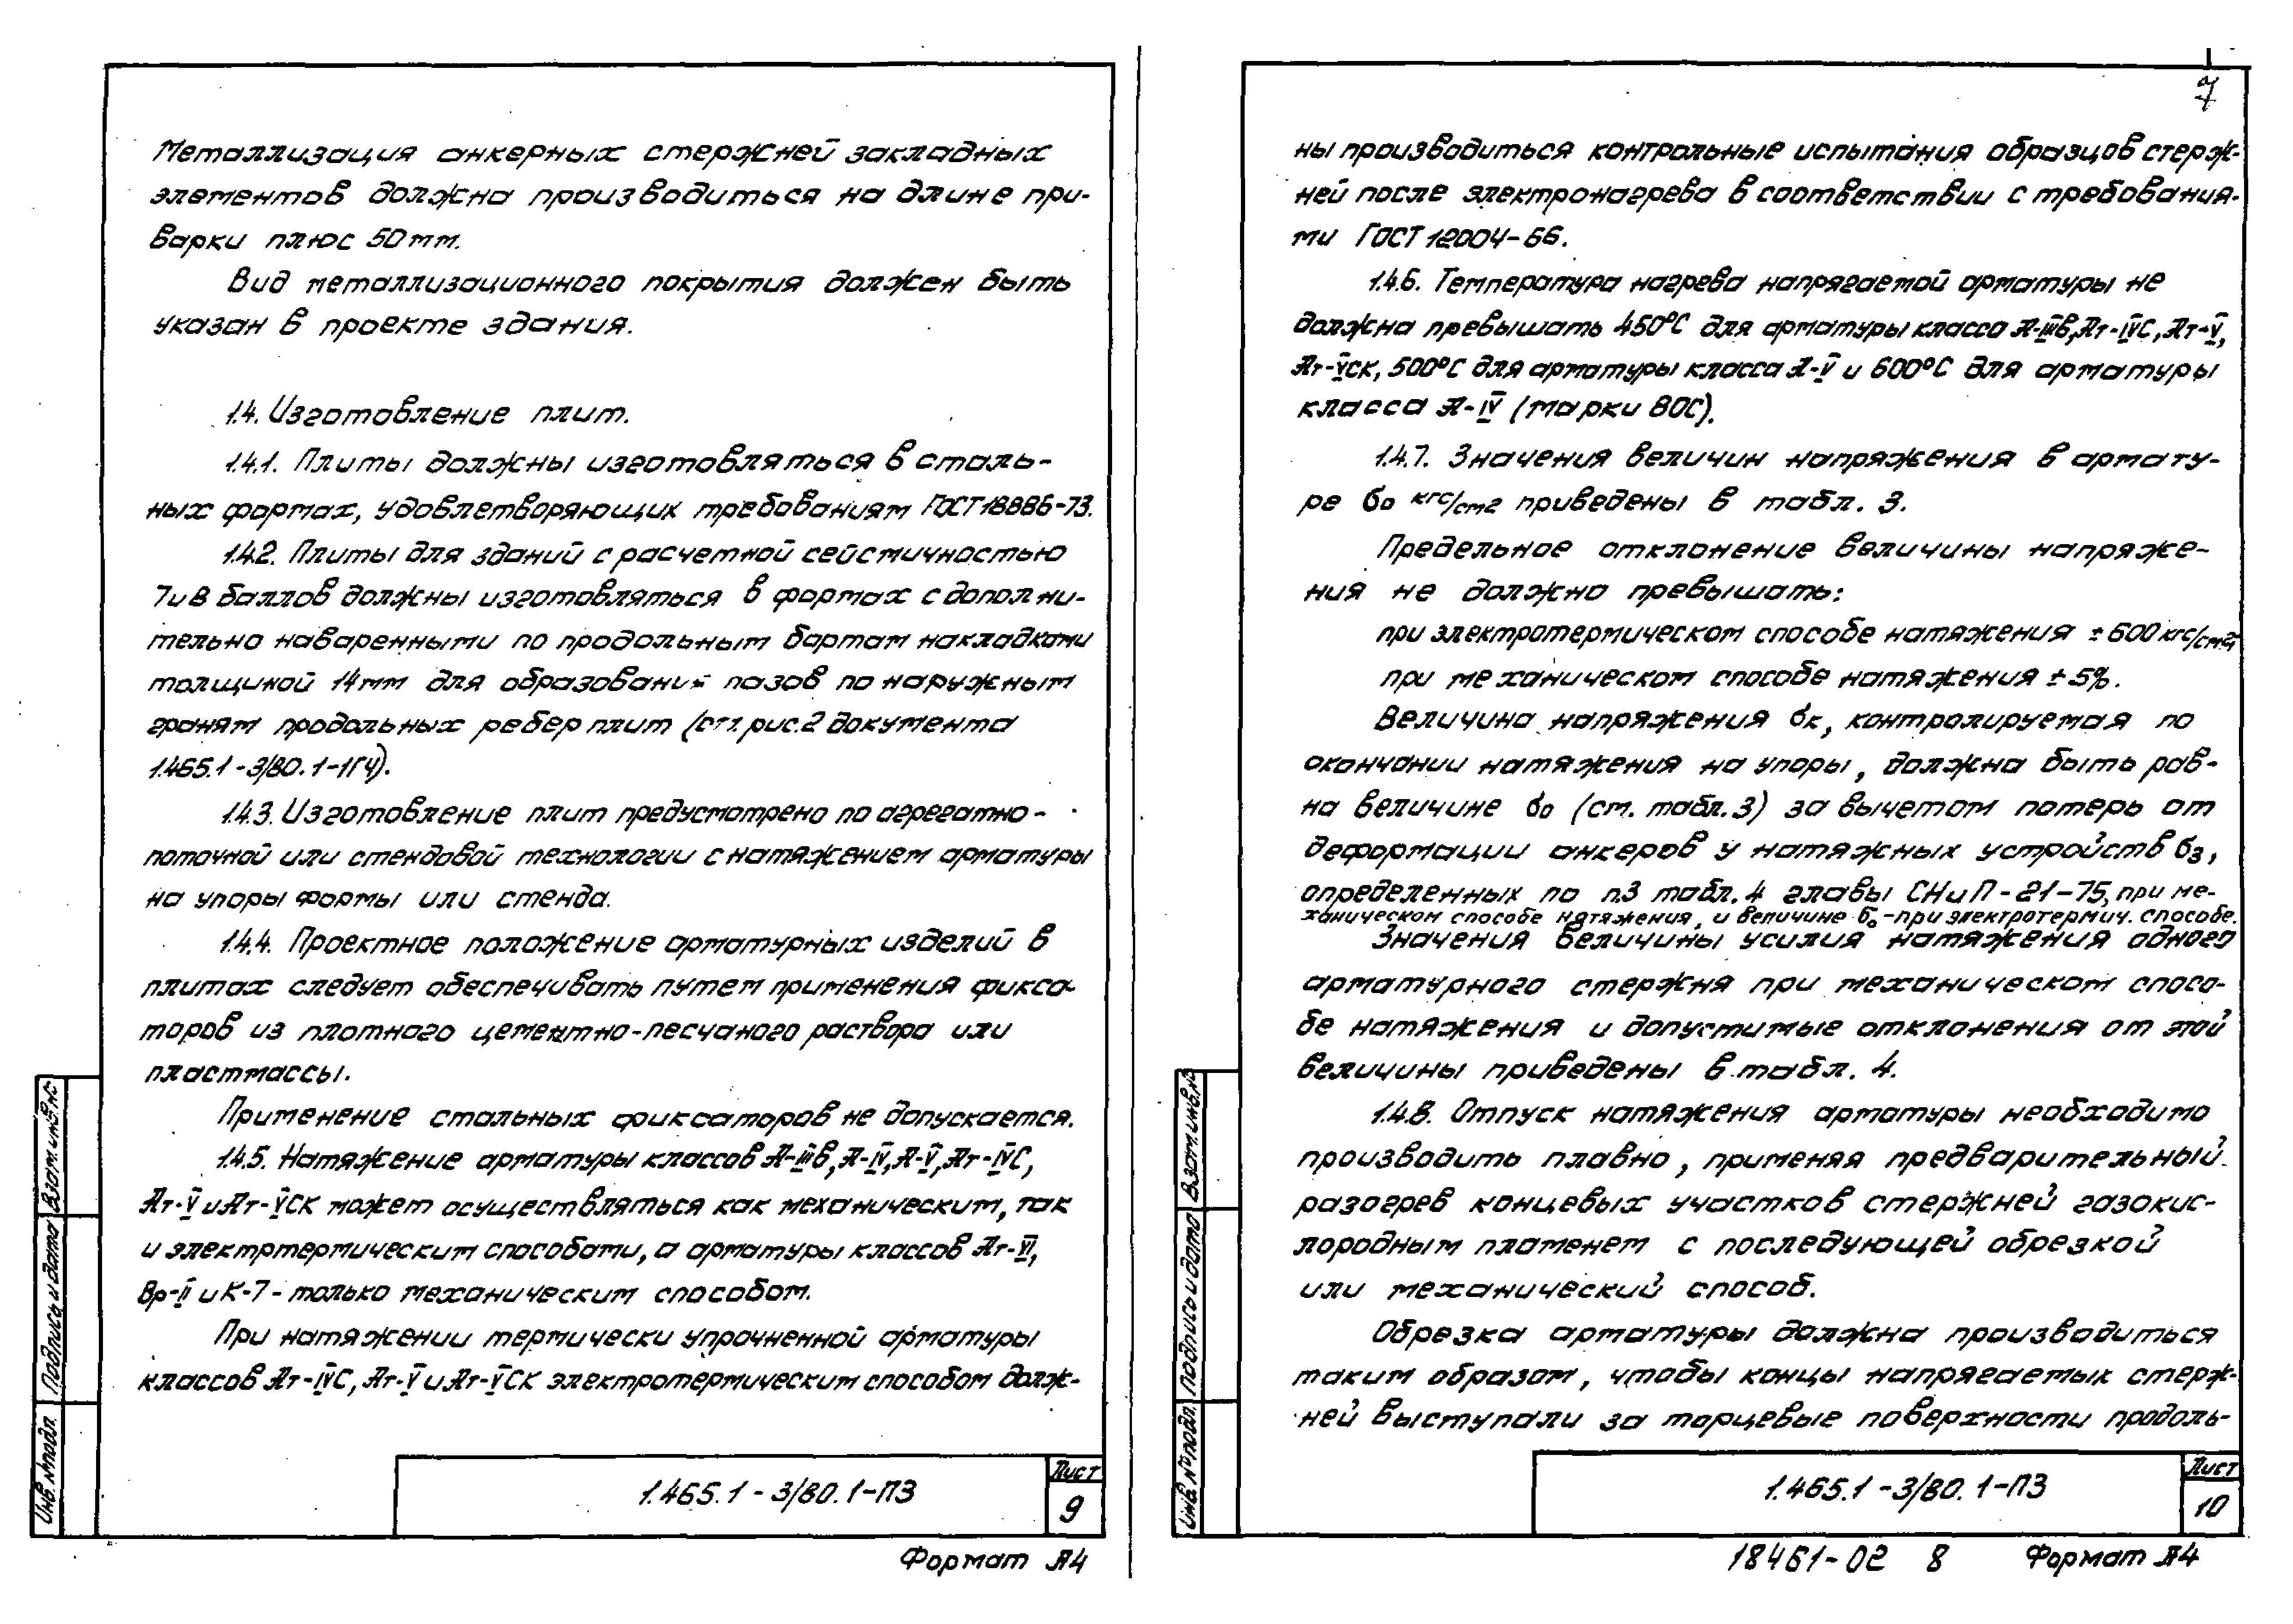 Металлизация анкерных стержней закладных
элементов должна производиться на длине при-
варки плюс 50мм.
Вид металлизационного покрытия должен быть
указан в проекте здания.
1.4. Изготовление плит.
1.4.1. Плиты должны изготовляться в сталь-
ных формах, удовлетворяющих требованиям ГОСТ 18886-73.
1.4.2. Плиты для зданий с расчетной сейсмичностью
7 и 8 баллов должны изготовляться в формах с дополни-
тельно наваренными по продольным бортам накладками
толщиной 14мм для образования пазов по наружным
граням продольных ребер плит (см. рис.2 документа
1.465.1-3/80.1-1ГЧ).
1.4.3. Изготовление плит предусмотрено по агрегатно-
поточной или стендовой технологии с натяжением арматуры
на упоры формы или стенда.
1.4.4. Проектное положение арматурных изделий в
плитах следует обеспечивать путем применения фикса-
торов из плотного цементно-песчаного раствора или
пластмассы.
Применение стальных фиксаторов не допускается.
1.4.5. Натяжение арматуры классов А-IIIв, А-IV, А-V, Ат-IVС,
Ат-V и Ат-VСК может осуществляться как механическим, так
и электртермическим способами, а арматуры классов Ат-VI,
Вр-II и К-7 - только механическим способом.
При натяжении термически упрочненной арматуры
классов Ат-IVС, Ат-V и Ат-VСК электротермическим способом долж-
1.465.1-3/80.1-ПЗ
Лист
9
Формат А4
Инв.№подл.
Подпись и дата
Взам.инв.№
7
ны производиться контрольные испытания образцов стерж-
ней после электронагрева в соответствии с требования-
ми ГОСТ 12004-66.
1.4.6. Температура нагрева напрягаемой арматуры не
должна превышать 450°С для арматуры класса А-IIIв, Ат-IVС, Ат-V,
Ат-VСК, 500°С для арматуры класса А-V и 600°С для арматуры
класса А-IV (марки 80С).
1.4.7. Значения величин напряжения в армату-
ре σ₀ кгс/см2 приведены в табл. 3.
Предельное отклонение величины напряже-
ния не должно превышать:
при электротермическом способе натяжения ±600 кгс/см2;
при механическом способе натяжения ±5%.
Величина напряжения σк, контролируемая по
окончании натяжения на упоры, должна быть рав-
на величине σ₀ (см. табл.3) за вычетом потерь от
деформации анкеров у натяжных устройств σ₃,
определенных по п.3 табл. 4 главы СНиП-21-75, при ме-
ханическом способе натяжения, и величине σ₀-при электротермич. способе.
Значения величины усилия натяжения одного
арматурного стержня при механическом спосо-
бе натяжения и допустимые отклонения от этой
величины приведены в табл. 4.
1.4.8. Отпуск натяжения арматуры необходимо
производить плавно, применяя предварительный
разогрев концевых участков стержней газокис-
лородным пламенем с последующей обрезкой
или механический способ.
Обрезка арматуры должна производиться
таким образом, чтобы концы напрягаемых стерж-
ней выступали за торцевые поверхности продоль-
1.465.1-3/80.1-ПЗ
Лист
10
18461-02 8 Формат А4
Инв.№подл.
Подпись и дата
Взам.инв.№